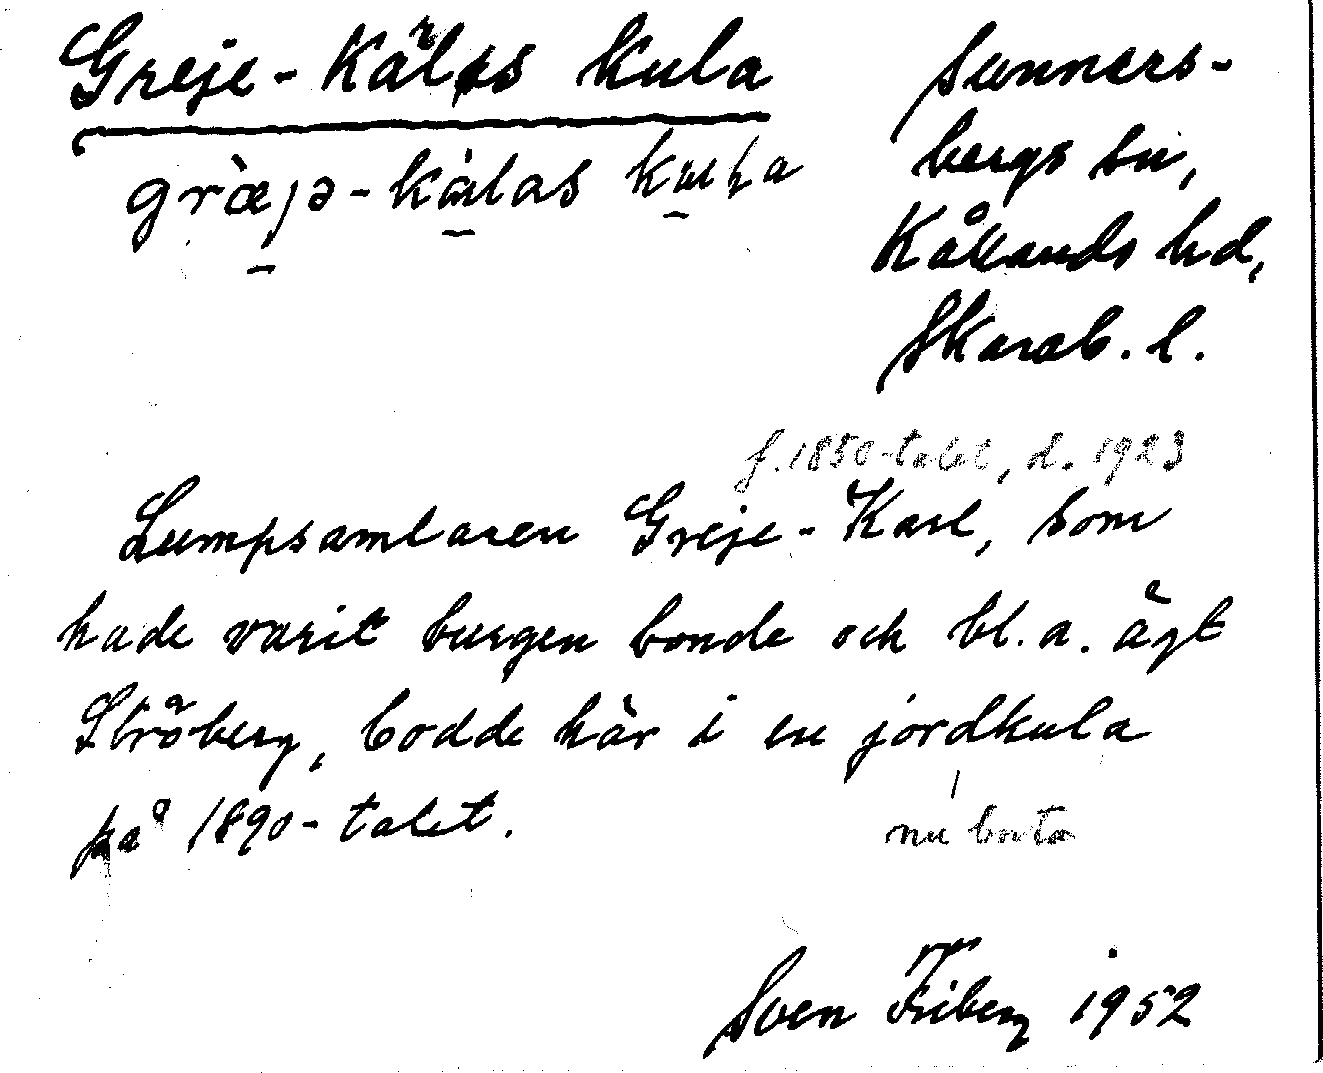 Greje-Kärls Kula
Sunners-
bergs sn,
Kållands hd,
Skarab. l.
f. 1850-talet, d. 1923
Lumpsamlaren Greje-Karl, som
hade varit burgen bonde och bl. a. ägt
Ströberg, bodde här i en jordkula
på 1890-talet.
nu borta
Sven Friberg 1952